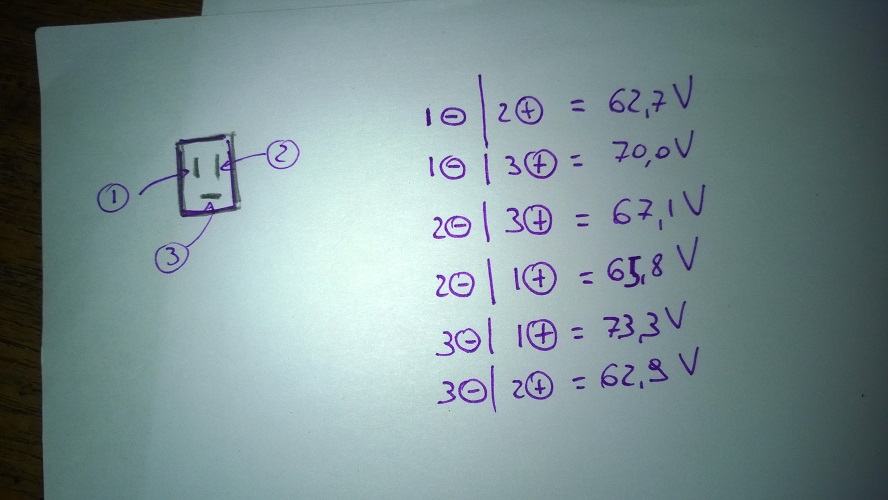 1⊖ | 2⊕ = 62,7 V
1⊖ | 3⊕ = 70,0 V
2⊖ | 3⊕ = 67,1 V
2⊖ | 1⊕ = 65,8 V
3⊖ | 1⊕ = 73,3 V
3⊖ | 2⊕ = 62,9 V
②
①
③